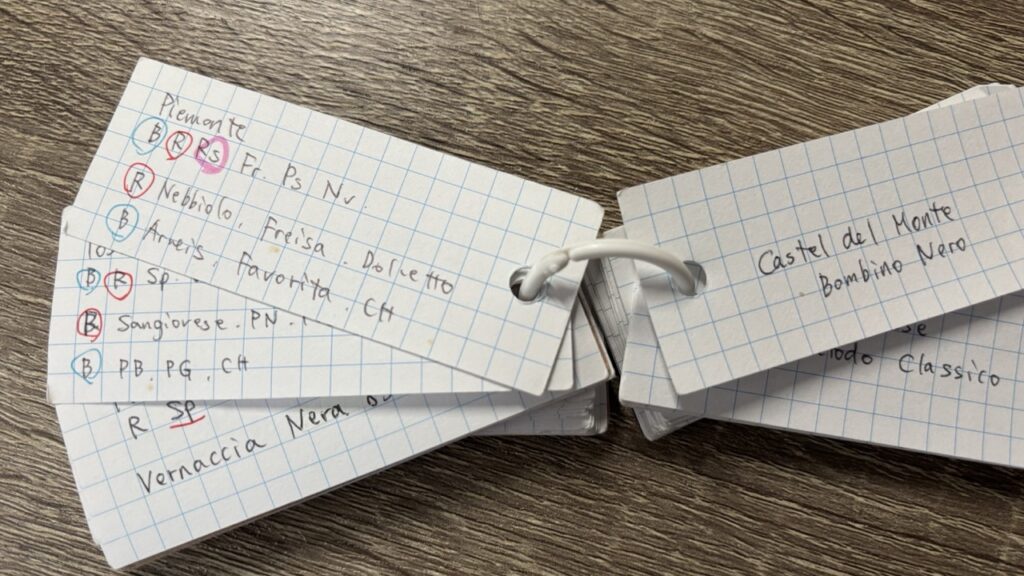 Piemonte
B R Rs Fr Ps Nv.
R Nebbiolo. Freisa. Dolcetto
B Arneis. Favorita. CH
B R Sp.
R Sangiovese. PN.
B PB PG. CH
R SP
Vernaccia Nera
Castel del Monte
Bombino Nero
Classico